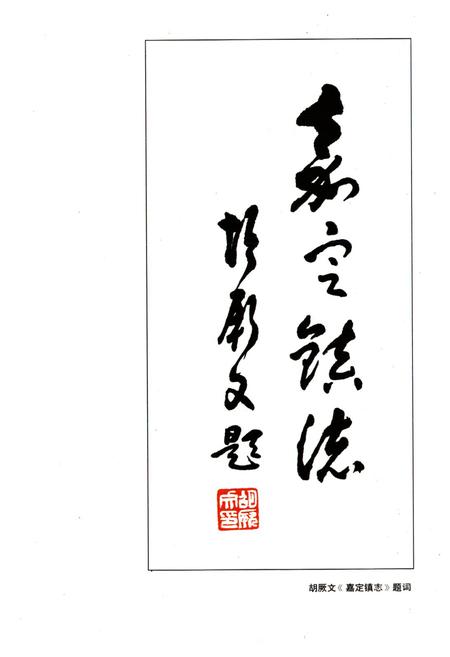 嘉定鎮誌
胡厥文题
胡厥文印
胡厥文《嘉定镇志》题词